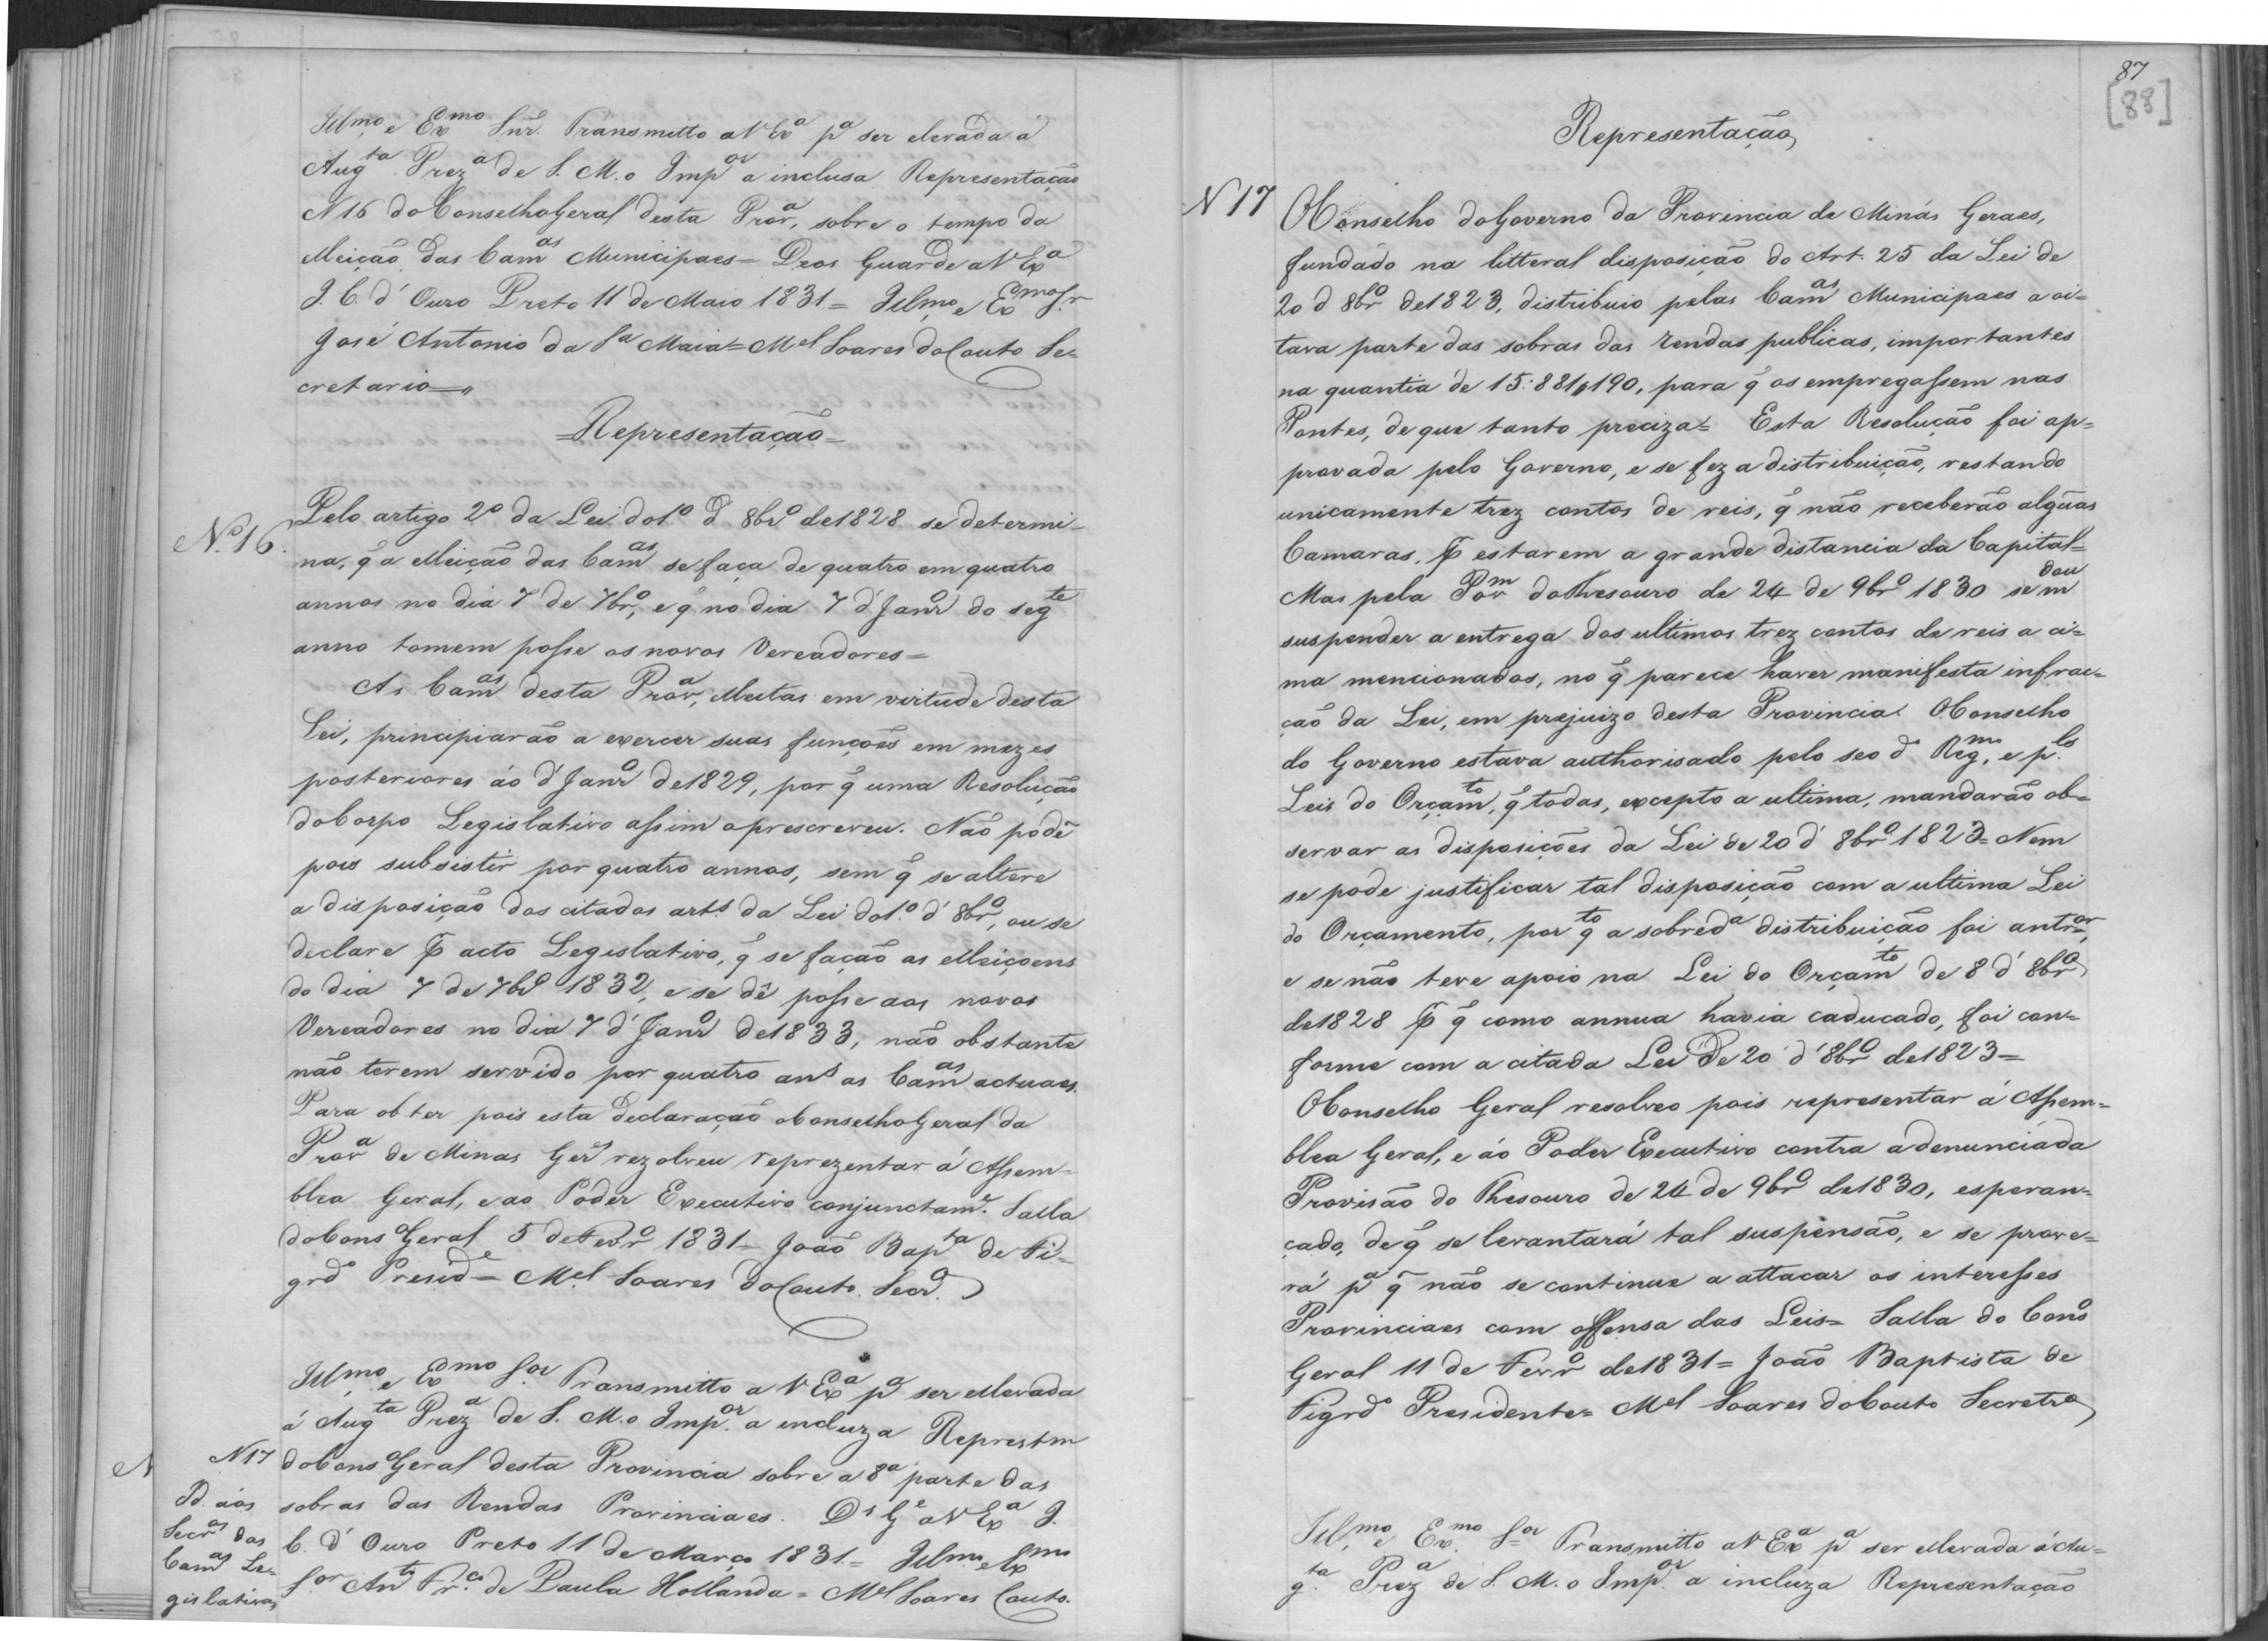 Illmo e Exmo Snr. Transmitto a V Exa pa ser elevada á
Augta Preza de S. M. o Impor a inclusa Representação
N 16 do Conselho Geral desta Prova, sobre o tempo da
elleição das Camas Municipaes = Deos Guarde a V Exa
I. C. d' Ouro Preto 11 de Maio 1831 = Illmo e Exmo Sr
José Antonio da Sa Maia = Mel Soares do Couto Se=
cretario
= Representação =
No 16.
Pelo artigo 2o da Lei do 1.o d' 8bro de 1828 se determi-
na, q̃ a elleição das Camas se faça de quatro em quatro
annos no dia 7 de 7bro, e q̃ no dia 7 d' Janro do segte
anno tomem posse os novos Vereadores =
As Camas desta Prova, elleitas em virtude desta
Lei, principiarão a exercer suas funçoẽs em mezes
posteriores áo d' Janro de 1829, por q̃ uma Resolução
do Corpo Legislativo assim o prescreveu. Não podẽ
pois subsistir por quatro annos, sem q̃ se altere
a disposição dos citados arts. da Lei do 1.o d' 8bro, ou se
declare p acto Legislativo, q̃ se fação as elleiçoens
do dia 7 de 7bro 1832, e se dê posse aos novos
Vereadores no dia 7 d' Janro de 1833, não obstante
não terem servido por quatro ans as Camas actuaes.
Para obter pois esta declaração o Conselho Geral da
Prova de Minas Gers rezolveu reprezentar á Assem-
blea Geral, e ao Poder Executivo conjunctame. Salla
do Conso Geral 5 de Fevro 1831 = João Bapta de Fi-
grdo Preside = Mel Soares do Couto. Secro.
Illmo e Exmo Sor Transmitto a V Exa pa ser ellevada
á Augta Preza de S. M. o Impor. a incluza Represtm
N 17
do Conso Geral desta Provincia sobre a 8a parte das
sobras das Rendas Provinciaes. Ds Ge a V Exa I.
C. d' Ouro Preto 11 de Março 1831 = Illmo e Exmo
Sor Anto Frco de Paula Hollanda = Mel Soares Couto.
Id. aos
Secros das
Camas Le=
gislativas
87
[88]
Representação
N 17
O Conselho do Governo da Provincia de Minas Geraes,
fundado na litteral disposição do Art. 25 da Lei de
20 d' 8bro de 1823, distribuio pelas Camas Municipaes a oi=
tava parte das sobras das rendas publicas, importantes
na quantia de 15:881,190, para q̃ as empregassem nas
Pontes, de que tanto preciza = Esta Resolução foi ap=
provada pelo Governo, e se fez a distribuição, restando
unicamente trez contos de reis, q̃ não receberão algũas
Camaras, p estarem a grande distancia da Capital =
Mas pela Porm do Thesouro de 24 de 9bro 1830 se mdou
suspender a entrega dos ultimos trez contos de reis a ci=
ma mencionados, no q̃ parece haver manifesta infrac=
ção da Lei, em prejuizo desta Provincia. O Conselho
do Governo estava authorisado pelo seo d' Regmo, e plas
Leis do Orçamto, q̃ todas, excepto a ultima, mandarão ob=
servar as disposições da Lei de 20 d' 8bro 1823 = Nem
se pode justificar tal disposição com a ultima Lei
do Orçamento, por qto a sobreda distribuição foi antror,
e se não teve apoio na Lei do Orçamto de 8 d' 8bro
de 1828 p q̃ como annua havia caducado, foi con=
forme com a citada Lei de 20 d' 8bro de 1823 =
O Conselho Geral resolveo pois representar á Assem=
blea Geral, e áo Poder Executivo contra a denunciada
Provisão do Thesouro de 24 de 9bro de 1830, esperan=
çado, de q̃ se levantará tal suspensão, e se prove=
rá pa q̃ não se continue a attacar os interesses
Provinciaes com offensa das Leis = Salla do Conso
Geral 11 de Fevro de 1831 = João Baptista de
Figrdo Presidente = Mel Soares do Couto Secretro
Illmo e Exmo Sor Transmitto a V Exa pa ser ellevada á Au=
gta Preza de S. M. o Impor. a incluza Representação